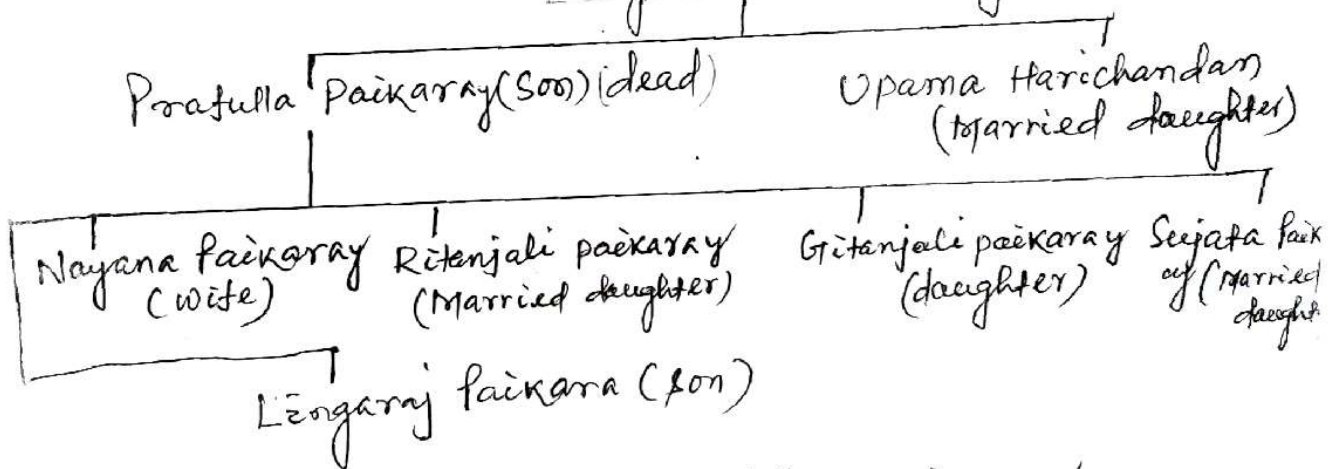 Prafulla Paikaray (Son) (dead)
Upama Harichandan
(Married daughter)
Nayana Paikaray
(wife)
Ritanjali paikaray
(Married daughter)
Gitanjali paikaray
(daughter)
Sujata Paik
ay (Married
daught
Lingaraj Paikara (son)